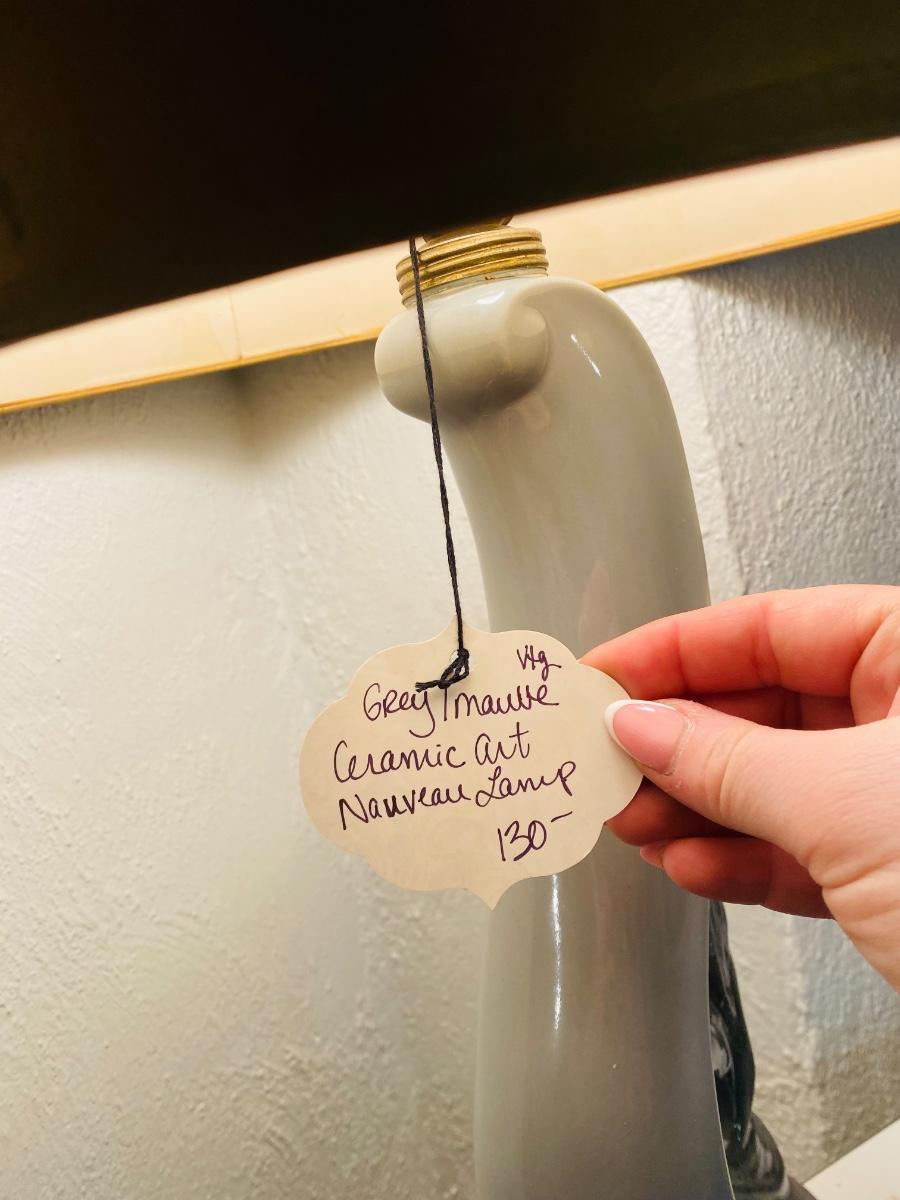 Vtg
Grey/mauve
Ceramic Art
Nauveau Lamp
130-